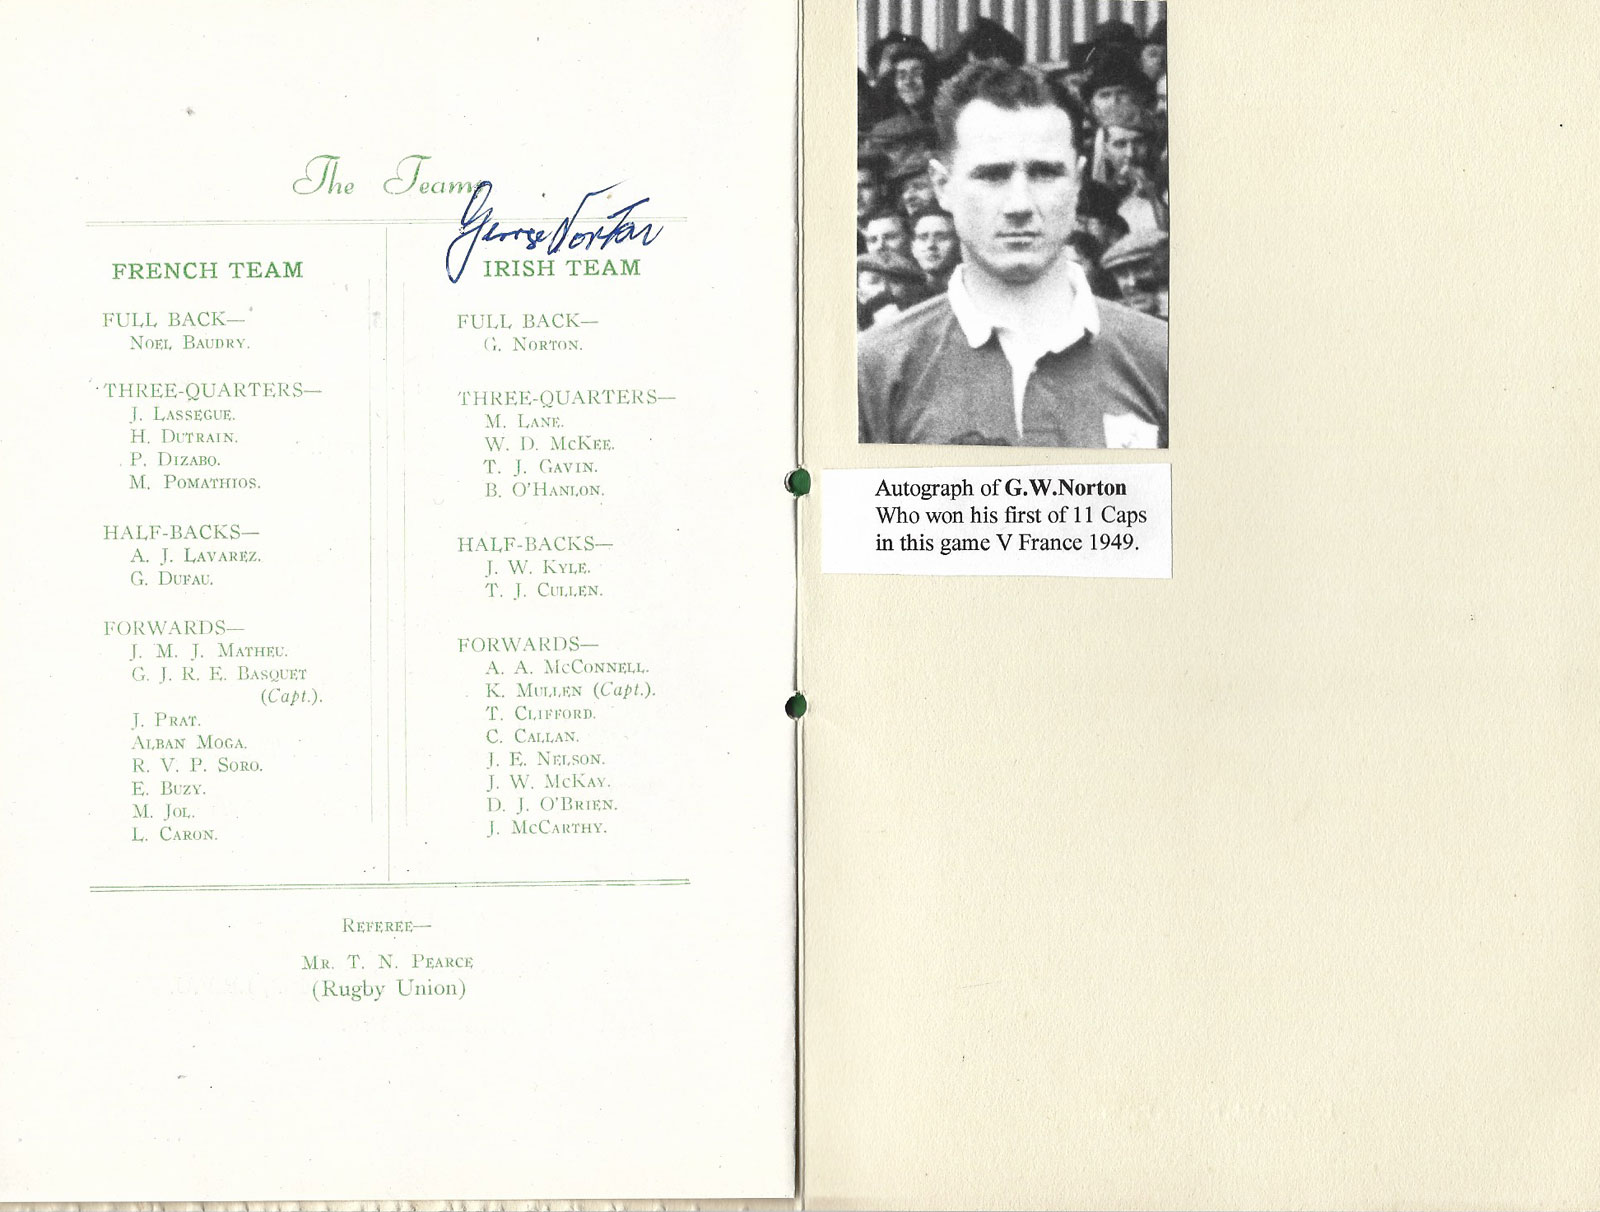 The Teams
George Norton
FRENCH TEAM
FULL BACK—
NOEL BAUDRY.
THREE-QUARTERS—
J. LASSEGUE.
H. DUTRAIN.
P. DIZABO.
M. POMATHIOS.
HALF-BACKS—
A. J. LAVAREZ.
G. DUFAU.
FORWARDS—
J. M. J. MATHEU.
G. J. R. E. BASQUET
(Capt.).
J. PRAT.
ALBAN MOGA.
R. V. P. SORO.
E. BUZY.
M. JOL.
L. CARON.
IRISH TEAM
FULL BACK—
G. NORTON.
THREE-QUARTERS—
M. LANE.
W. D. McKEE.
T. J. GAVIN.
B. O'HANLON.
HALF-BACKS—
J. W. KYLE.
T. J. CULLEN.
FORWARDS—
A. A. McCONNELL.
K. MULLEN (Capt.).
T. CLIFFORD.
C. CALLAN.
J. E. NELSON.
J. W. McKAY.
D. J. O'BRIEN.
J. McCARTHY.
REFEREE—
MR. T. N. PEARCE
(Rugby Union)
Autograph of G.W.Norton
Who won his first of 11 Caps
in this game V France 1949.